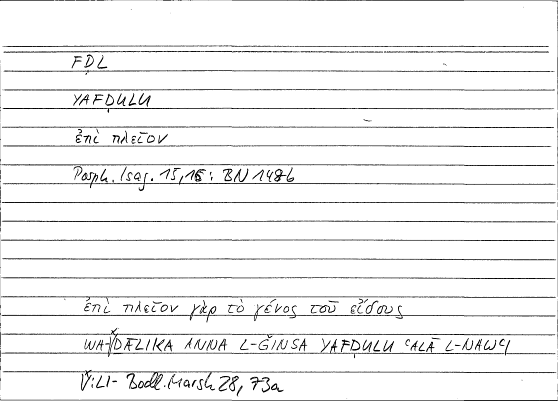 FḌL
YAFḌULU
ἐπὶ πλεῖον
Porph. Isag. 15,16: BN 148b
ἐπὶ πλεῖον γὰρ τὸ γένος τοῦ εἴδους
WA-ḎĀLIKA ANNA L-ǦINSA YAFḌULU ʿALĀ L-NAWʿI
V: LI- Bodl. Marsh 28, 73a